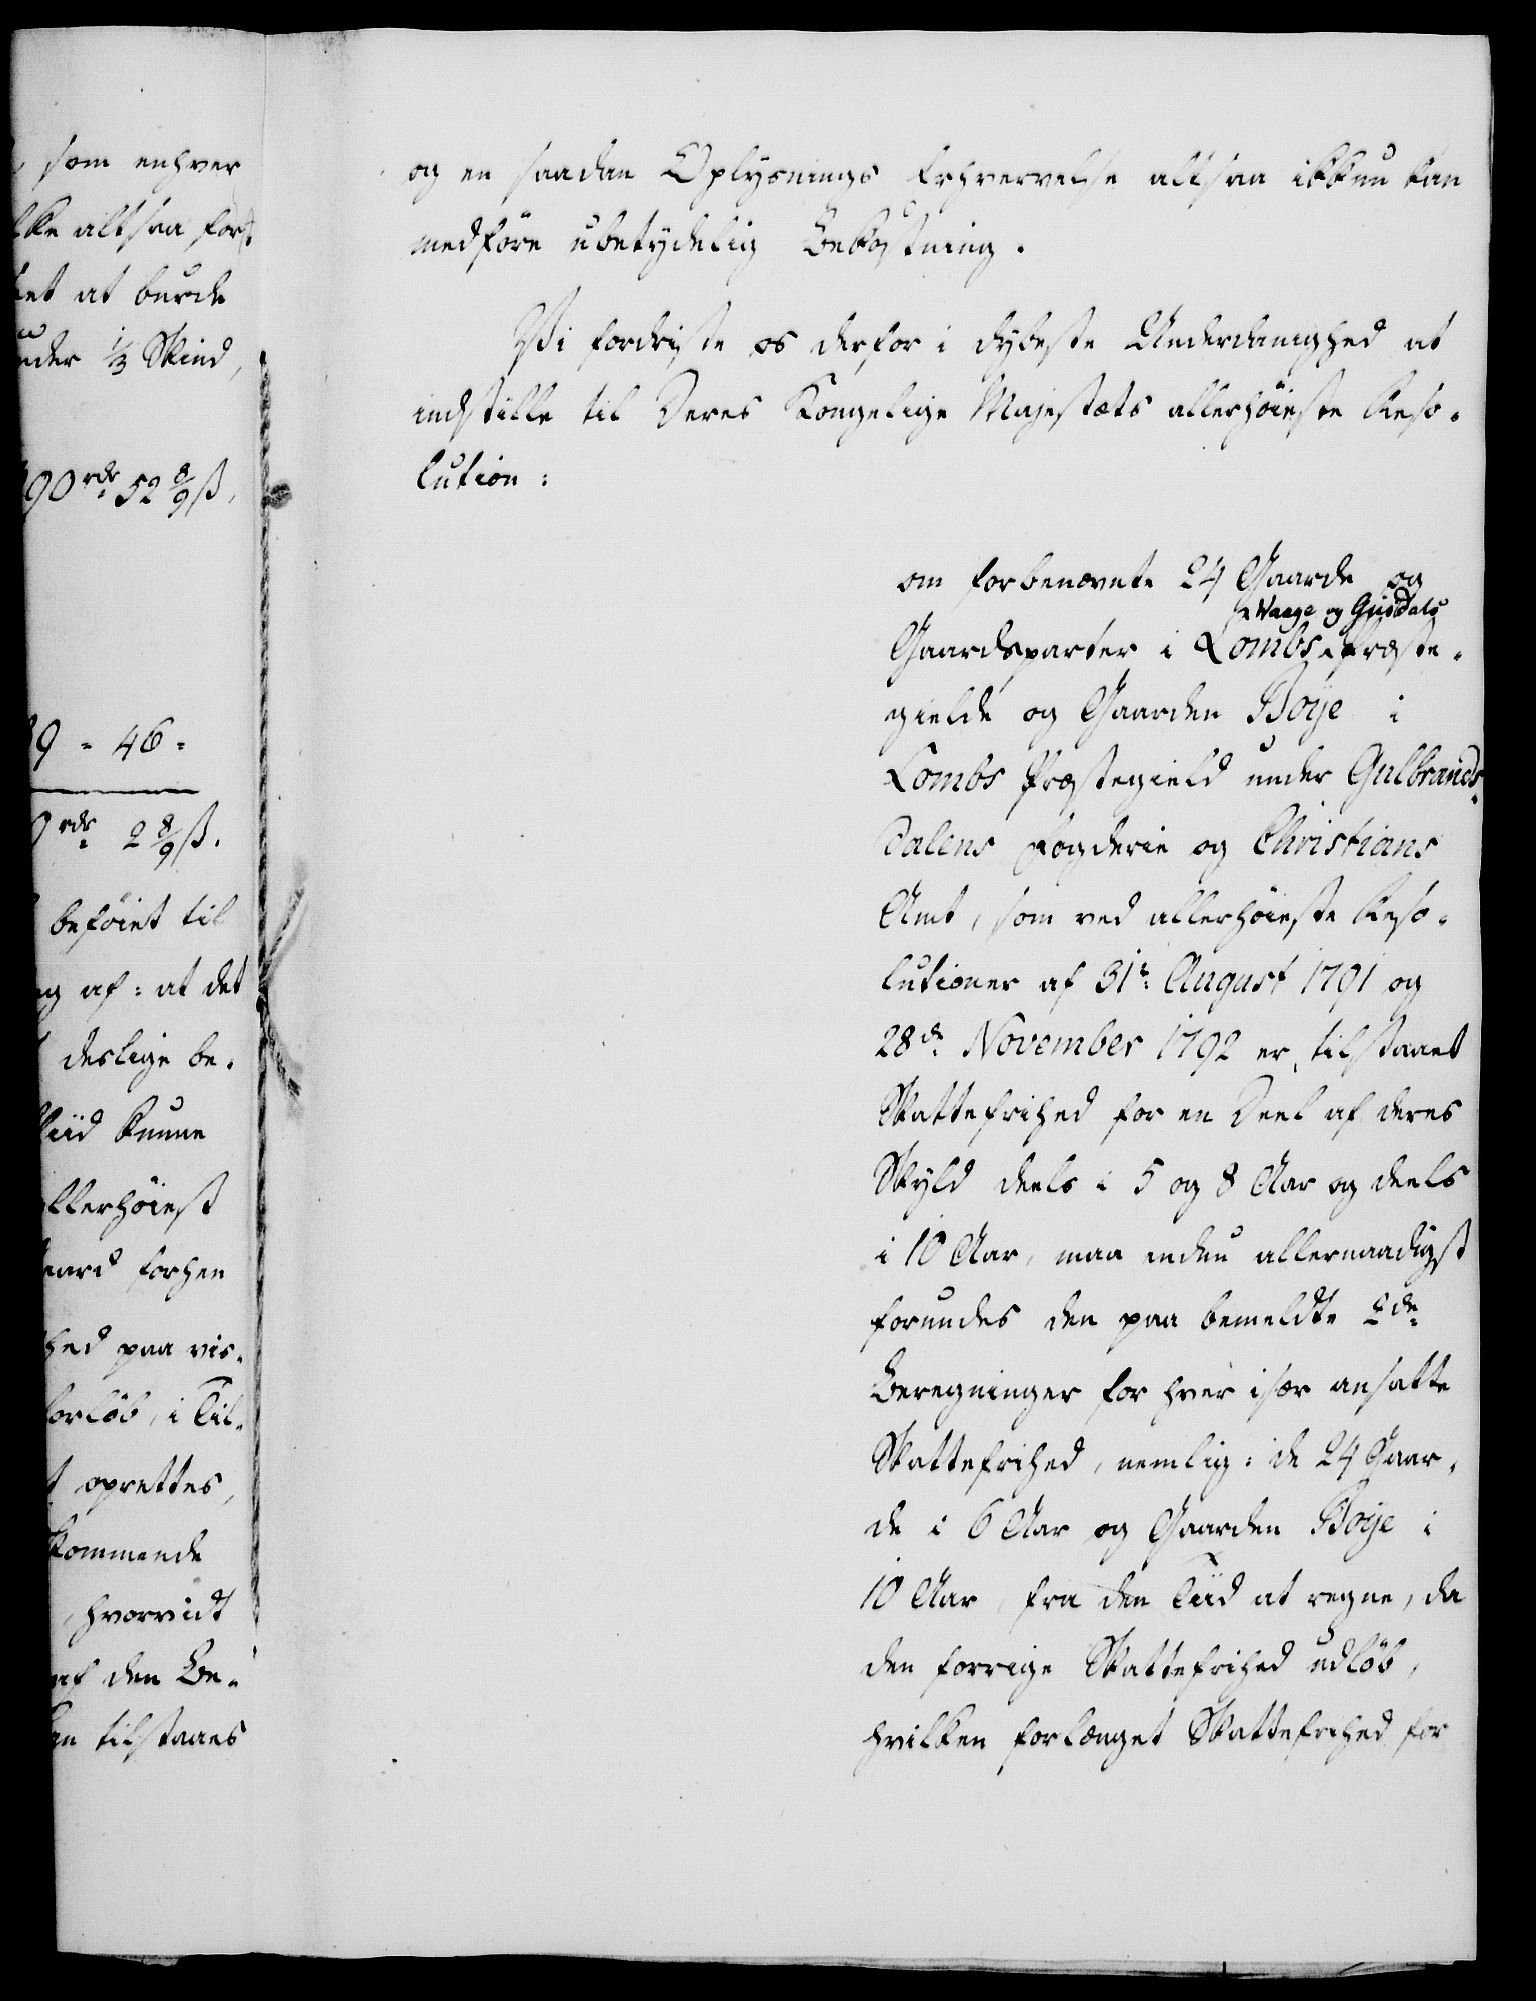 som enhver
lke altsaa for¬
ket at burde
nder 1/3 Skind,
90 rdr 52 8/9 ß.
9 = 46 =
rdr 2 8/9 ß.
beföiet til
ng af: at det
deslige be¬
tiid kunne
allerhöiest
aard forhen
hed paa vis¬
forlöb, i Til¬
t oprettes,
kommende
, hvorvidt
af den Be¬
an tilstaaes
og en saadan Oplysnings Erhvervelse altsaa ikkun kan
medföre ubetydelig Bekostning.
Vi fordriste os derfor i dybeste Underdanighed at
indstille til Deres Kongelige Majestæts allerhöieste Reso¬
lution:
om forbenævnte 24 Gaarde og
Waage og Gusdals
Gaardsparter i Lombs Præste¬
gielde og Gaarden Böÿe i
Lombs Præstegield under Gulbrands¬
dalens Fogderie og Christians
Amt, som ved allerhöieste Reso¬
lutioner af 31te August 1791 og
28de November 1792 er tilstaaet
Skattefrihed for en Deel af deres
Skyld deels i 5 og 8 Aar og deels
i 10 Aar, maa endnu allernaadigst
forundes den paa bemeldte 2de
Beregninger for hver især ansatte
Skattefrihed, nemlig: de 24 Gaar¬
de i 6 Aar og Gaarden Böÿe i
10 Aar, fra den Tiid at regne, da
den forrige Skattefrihed udlöb,
hvilken forlænget Skattefrihed for